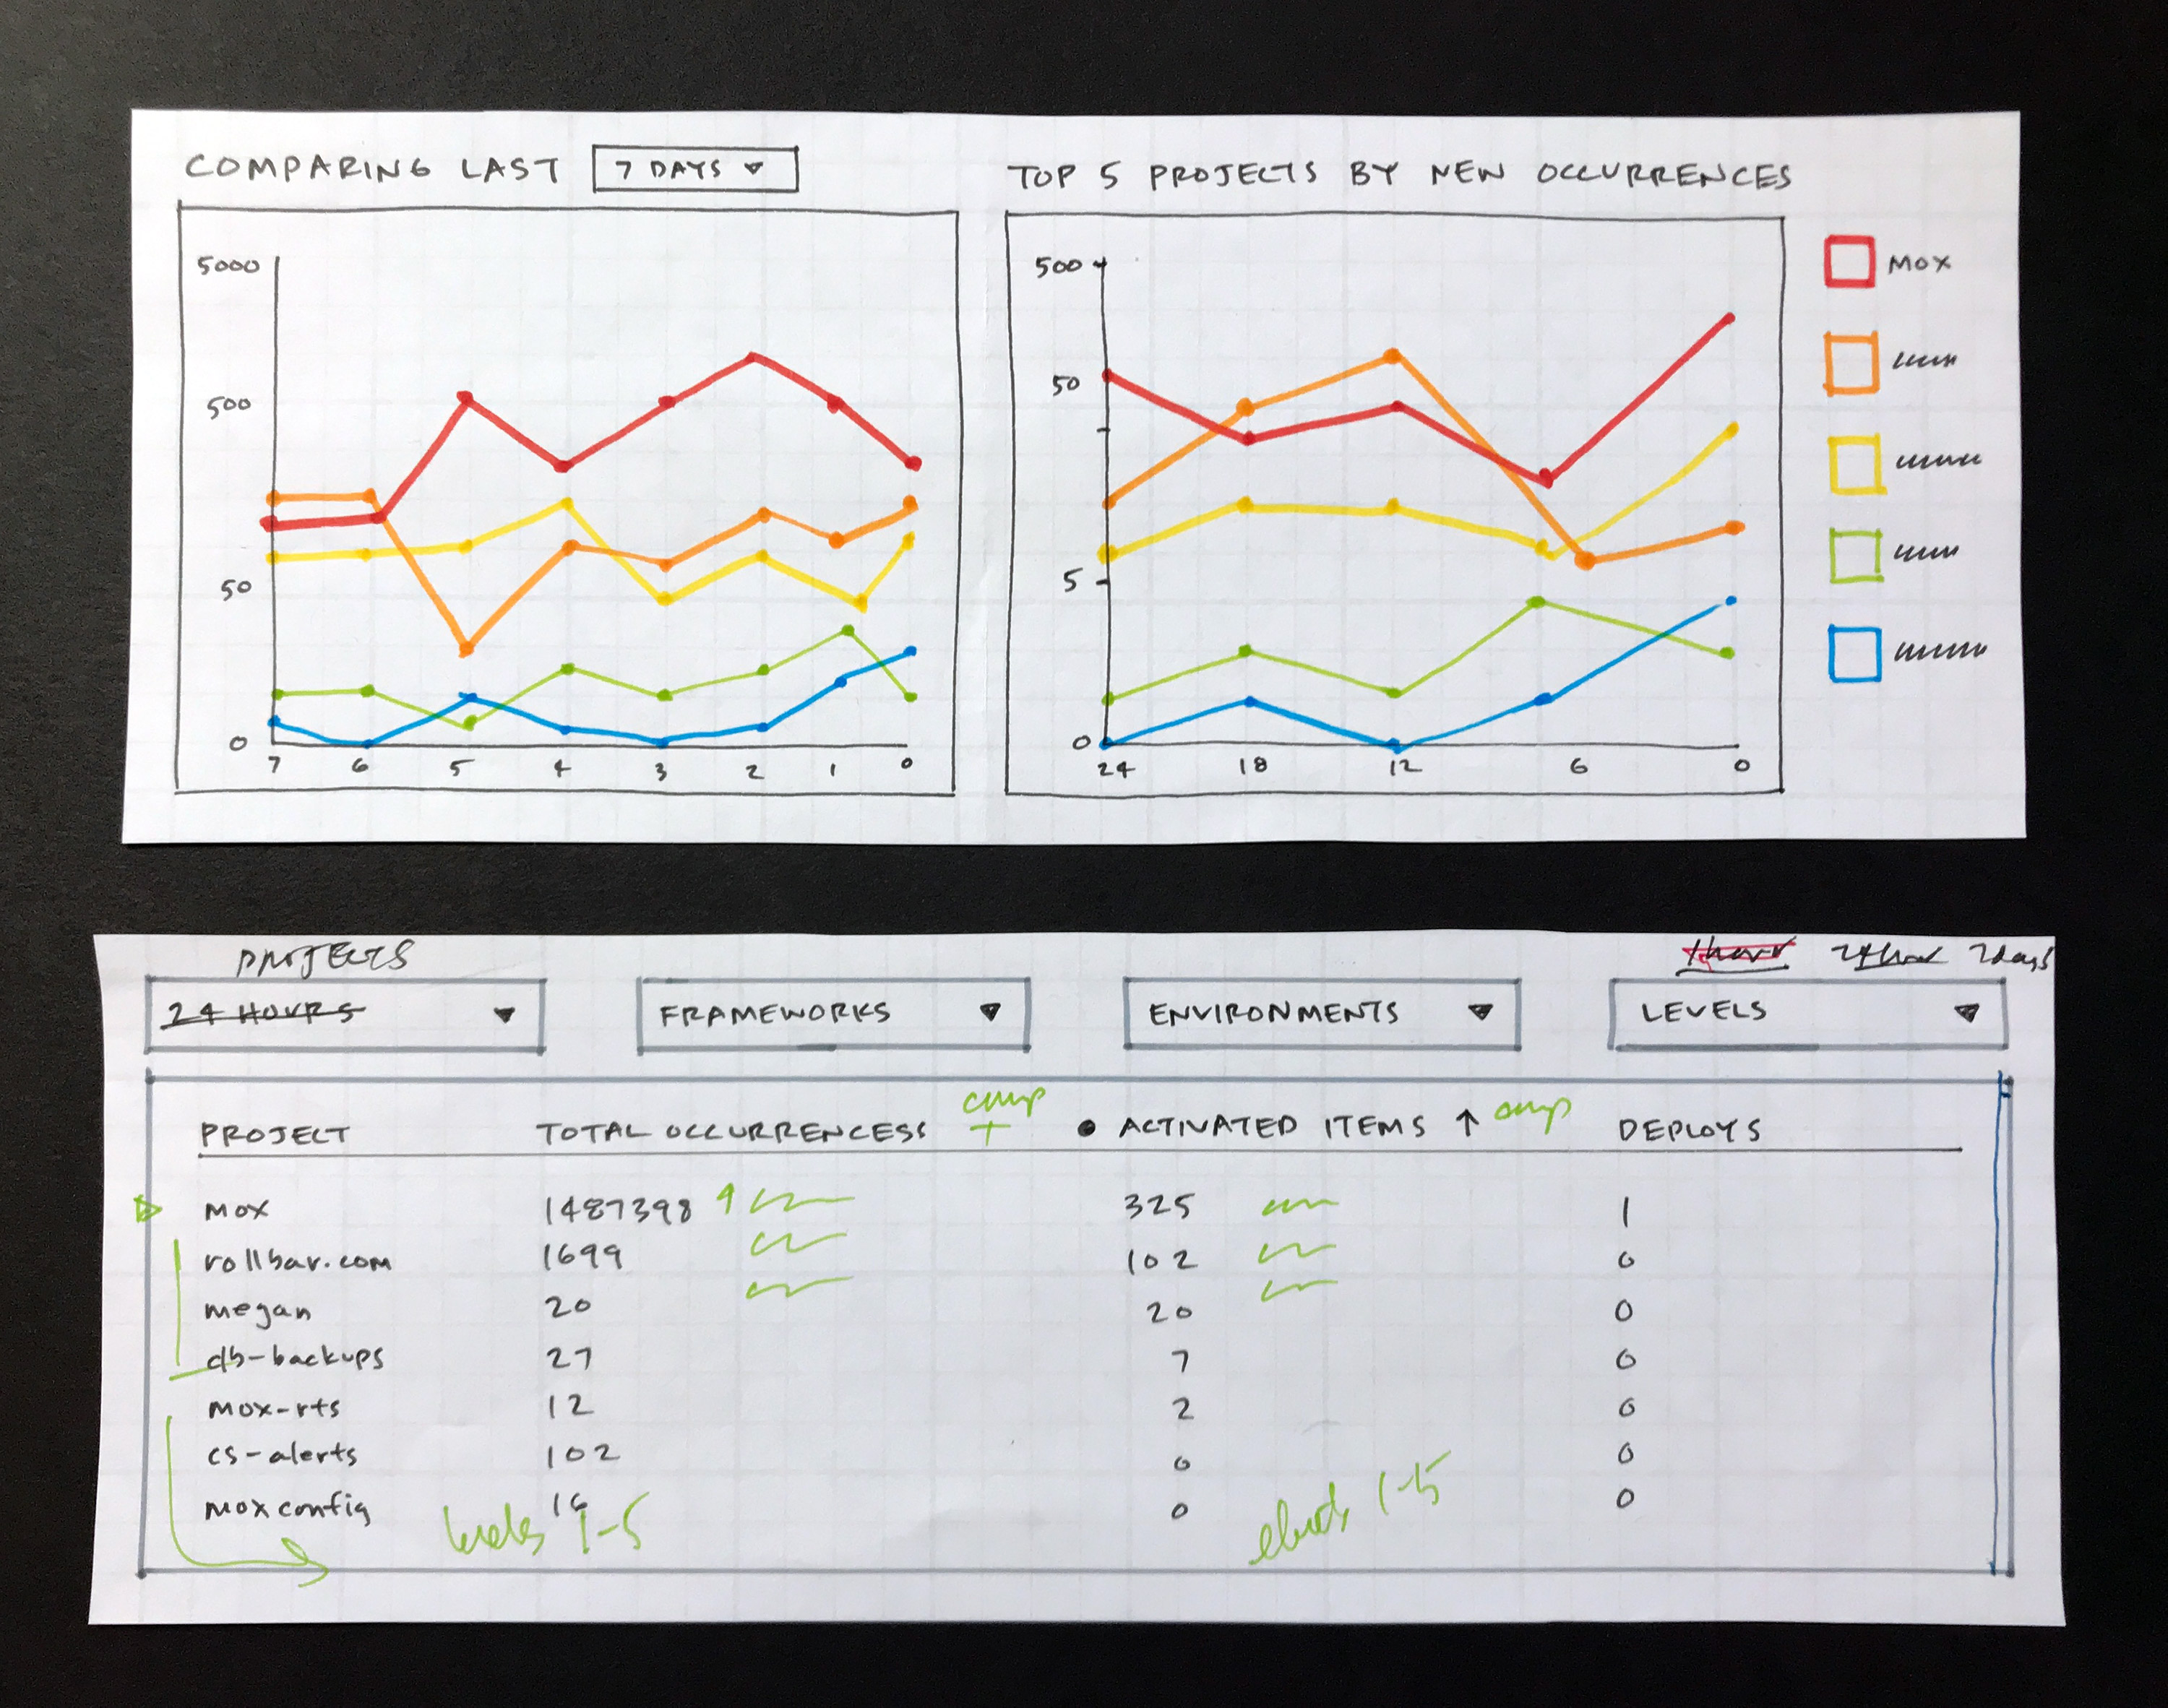 COMPARING LAST 7 DAYS
TOP 5 PROJECTS BY NEW OCCURRENCES
5000
500
50
0
7 6 5 4 3 2 1 0
500
50
5
0
24 18 12 6 0
MOX
PROJECTS
1 hour 24 hour 7 days
24 HOURS FRAMEWORKS ENVIRONMENTS LEVELS
comp comp
PROJECT TOTAL OCCURRENCESS + ACTIVATED ITEMS ↑ DEPLOYS
mox 1487398 325 1
rollbar.com 1699 102 0
megan 20 20 0
db-backups 27 7 0
mox-rts 12 2 0
cs-alerts 102 0 0
moxconfig 16 0 0
levels 1-5 1-5